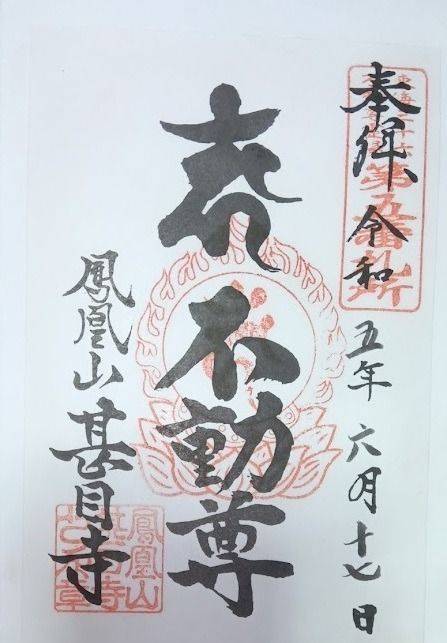 奉拝 令和五年六月十七日
第五番札所
不動尊
鳳凰山甚目寺
鳳凰山